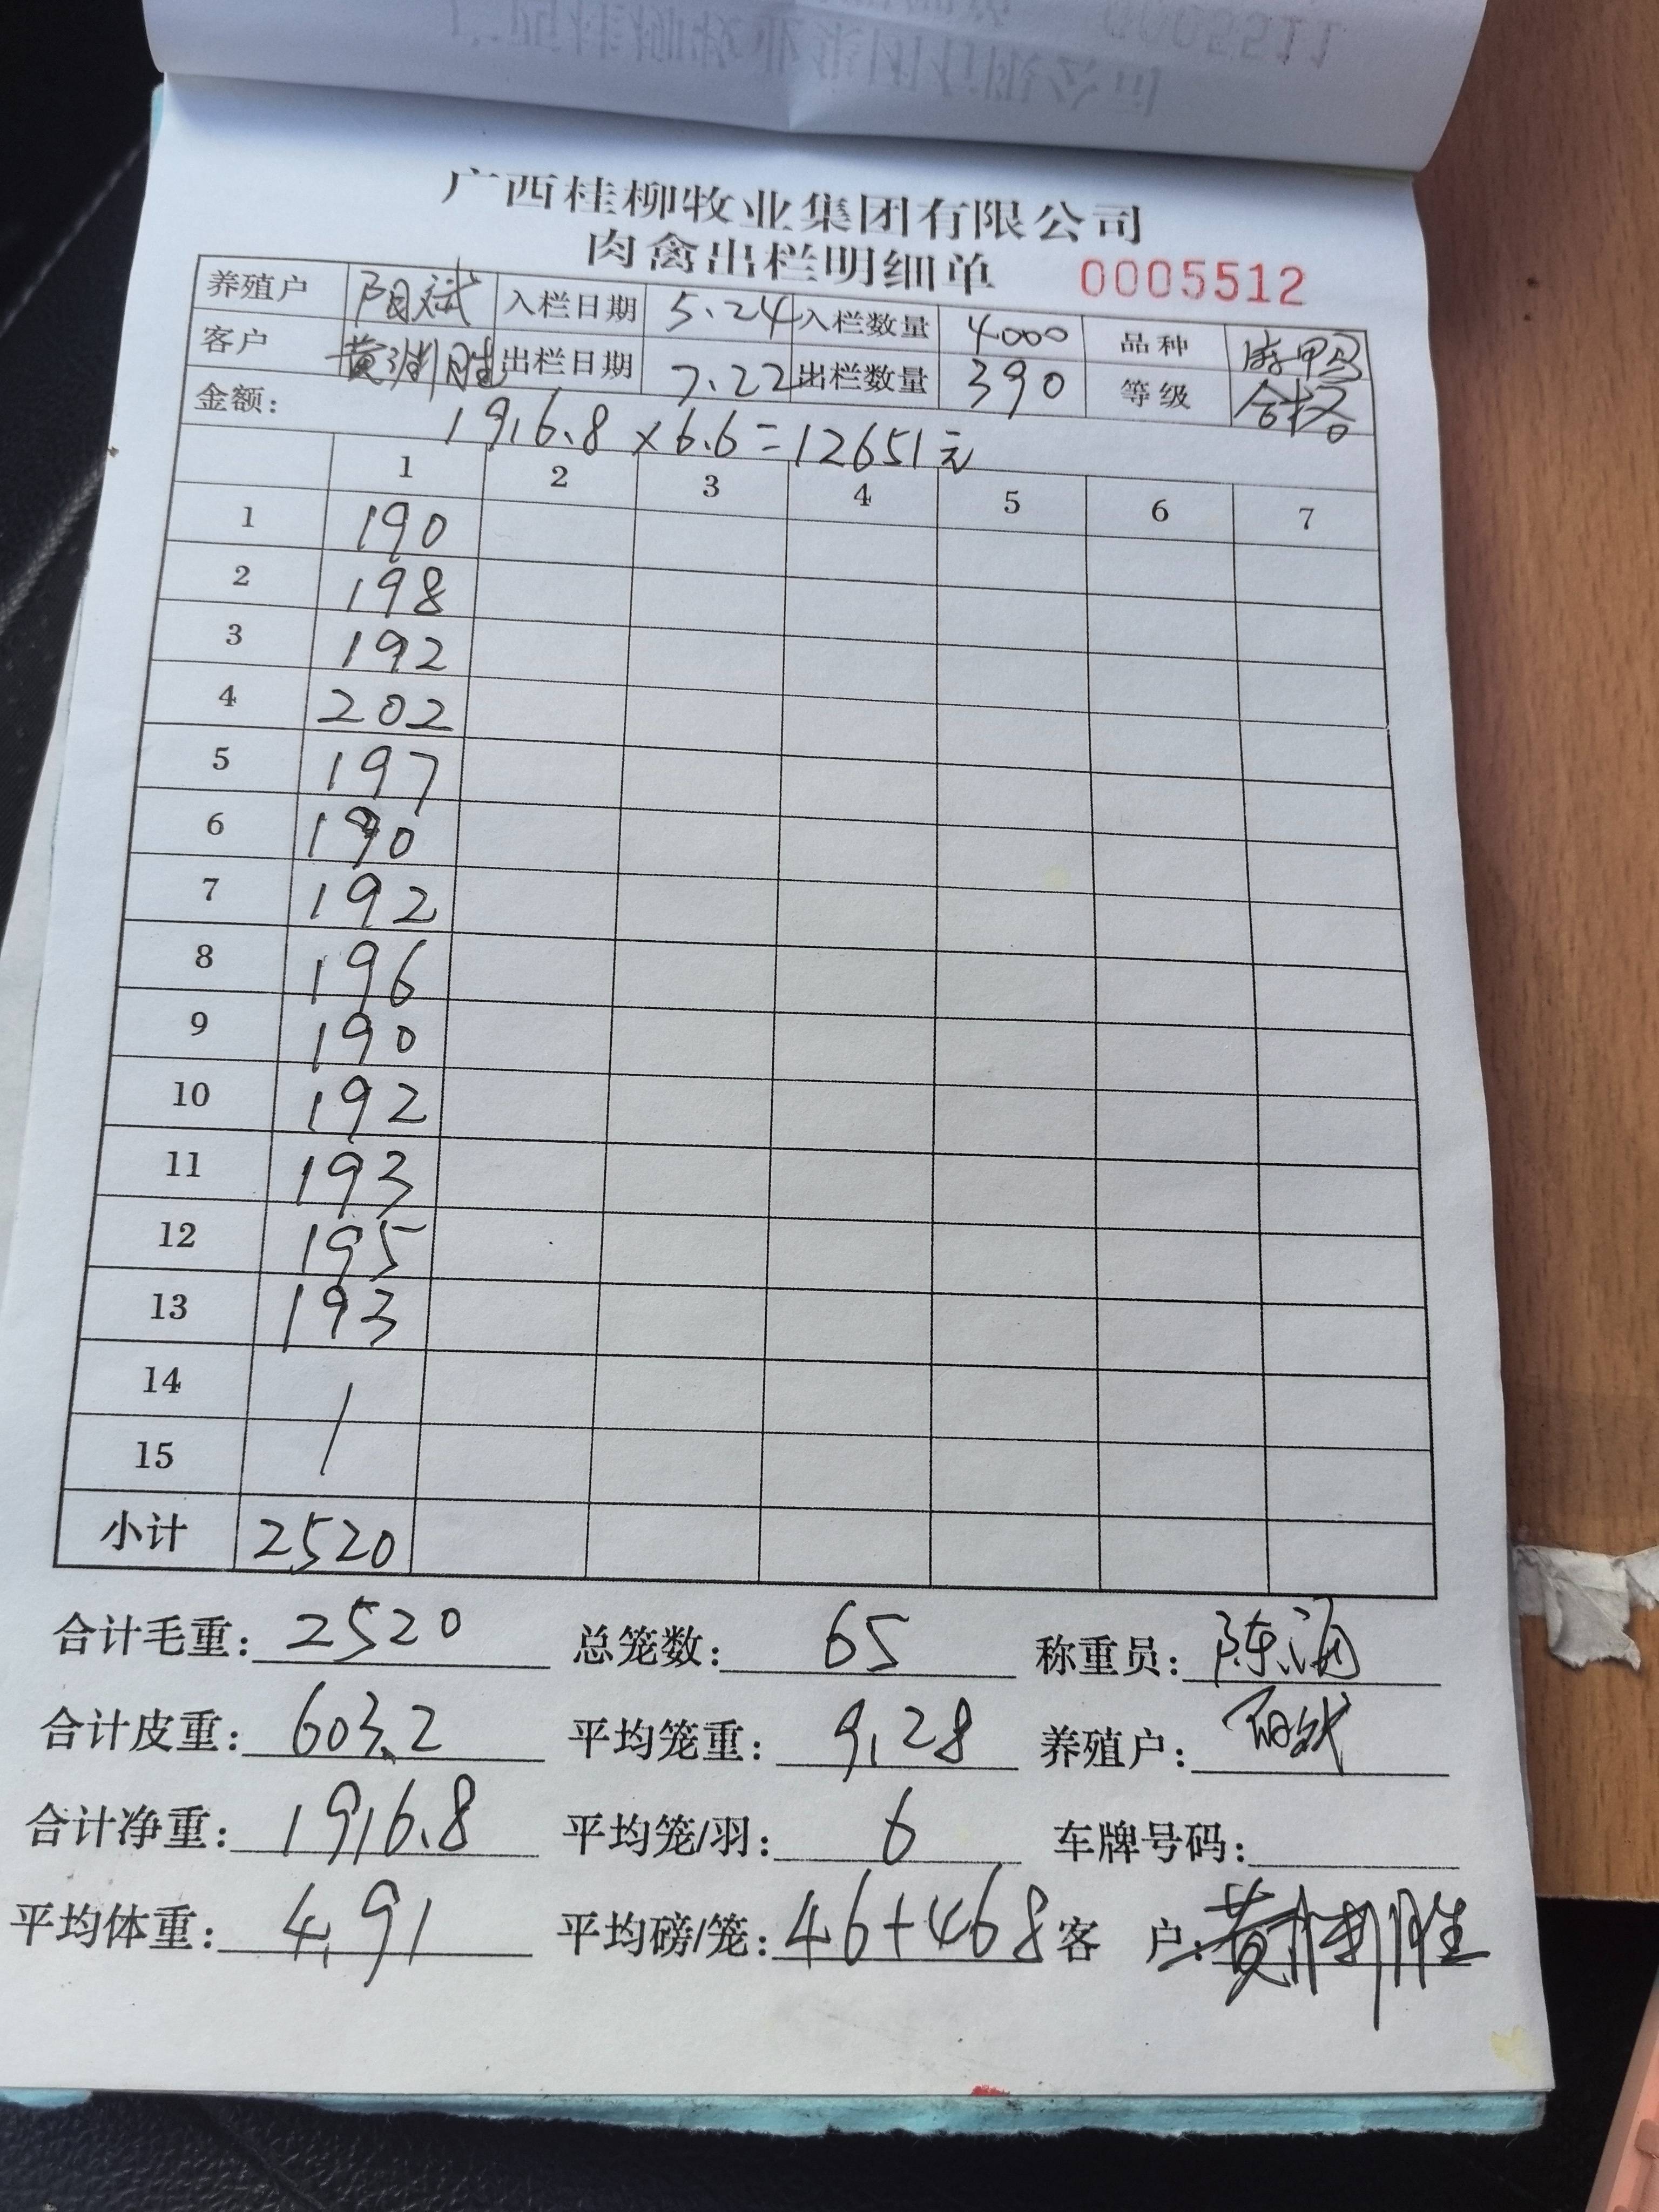 0005511
广西桂柳牧业集团有限公司
肉禽出栏明细单 0005512
养殖户 阳斌 入栏日期 5.24 入栏数量 4000 品种 麻甲鸟
客户 黄渊胜 出栏日期 7.22 出栏数量 390 等级 合格
金额: 1916.8×6.6=12651元
1 2 3 4 5 6 7
1 190
2 198
3 192
4 202
5 197
6 190
7 192
8 196
9 190
10 192
11 193
12 195
13 193
14 /
15
小计 2520
合计毛重: 2520 总笼数: 65 称重员: 陈海
合计皮重: 603.2 平均笼重: 9.28 养殖户: 阳斌
合计净重: 1916.8 平均笼/羽: 6 车牌号码:
平均体重: 4.91 平均磅/笼: 46+468 客 户: 黄渊胜